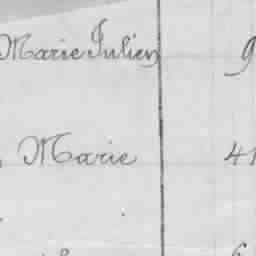 Marie Julien 9
Marie 41